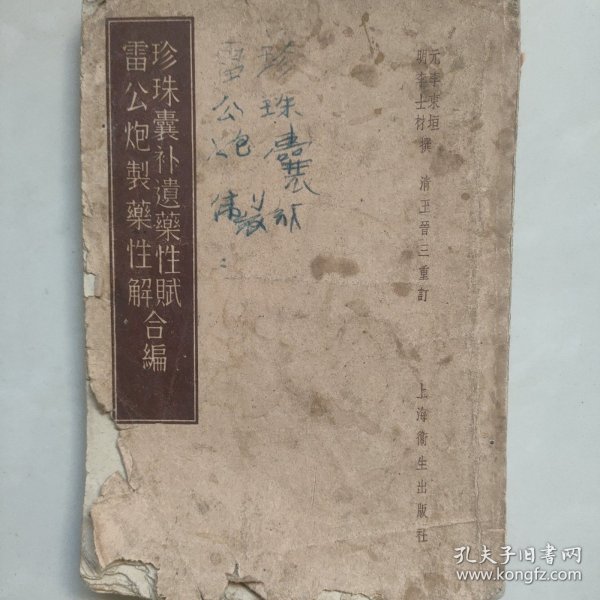 元李東垣
明李士材 撰 清王晉三重訂
上海衞生出版社
珍珠囊
雷公炮製
珍珠囊补遺藥性賦
雷公炮製藥性解
合編
孔夫子旧书网
www.kongfz.com